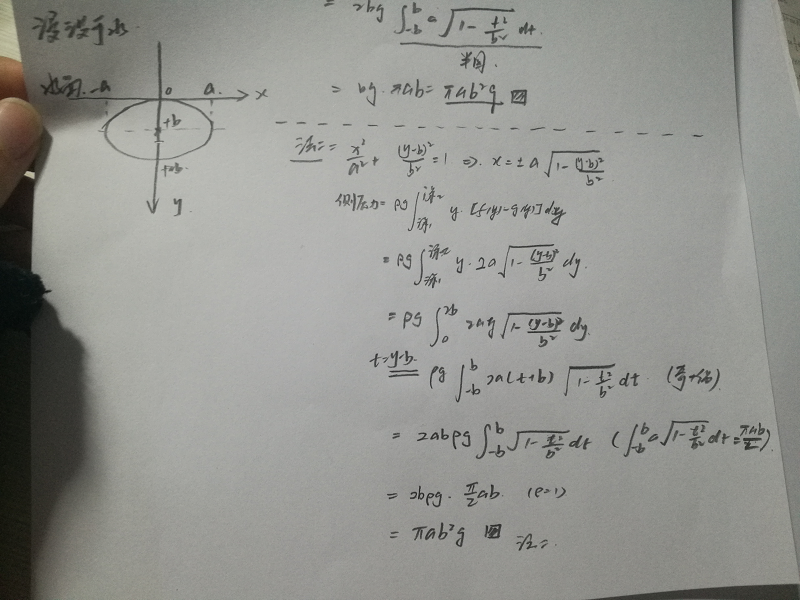 = 2bg ∫_{-b}^{b} a√(1 - t²/b²) dt.
半圆.
= bg · πab = πab²g
浸没于水
水面 -a 0 a. x
+b
+2b
y
法二: x²/a² + (y-b)²/b² = 1 ⇒ x = ±a√(1 - (y-b)²/b²)
侧压力 = ρg ∫_{深1}^{深2} y·[f(y)-g(y)] dy
= ρg ∫_{深1}^{深2} y·2a√(1 - (y-b)²/b²) dy.
= ρg ∫_0^{2b} 2ay√(1 - (y-b)²/b²) dy.
t=y-b. ρg ∫_{-b}^{b} 2a(t+b) √(1 - t²/b²) dt (奇+偶)
= 2abρg ∫_{-b}^{b} √(1 - t²/b²) dt (∫_{-b}^{b} a√(1 - t²/b²) dt = πab/2)
= 2bρg · π/2 ab. (ρ=1)
= πab²g 法二.